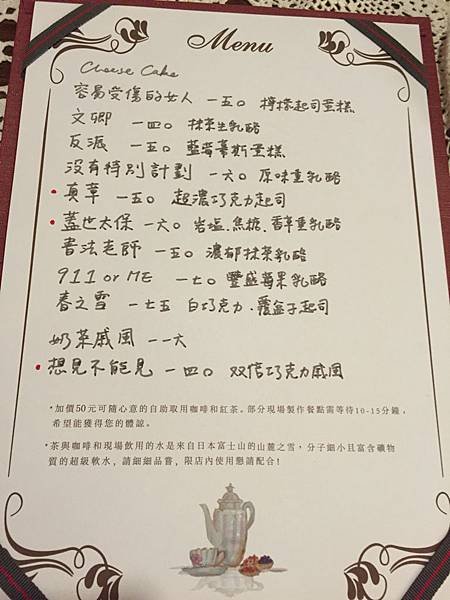 Menu
Cheese Cake
容易受傷的女人 一五〇 檸檬起司蛋糕
文卿 一四〇 抹茶生乳酪
反派 一五〇 藍莓慕斯蛋糕
沒有特別計劃 一六〇 原味重乳酪
• 真章 一五〇 超濃巧克力起司
• 蓋世太保 一六〇 岩塩.焦糖.香草重乳酪
書法老師 一五〇 濃郁抹茶乳酪
911 or ME 一七〇 豐盛莓果乳酪
春之雪 一七五 白巧克力.覆盆子起司
奶茶戚風 一一六
• 想見不能見 一四〇 双倍巧克力戚風
•加價50元可隨心意的自助取用咖啡和紅茶。部分現場製作餐點需等待10-15分鐘，
希望能獲得您的體諒。
•茶與咖啡和現場飲用的水是來自日本富士山的山麓之雪，分子細小且富含礦物
質的超級軟水，請細細品嘗，限店內使用懇請配合！